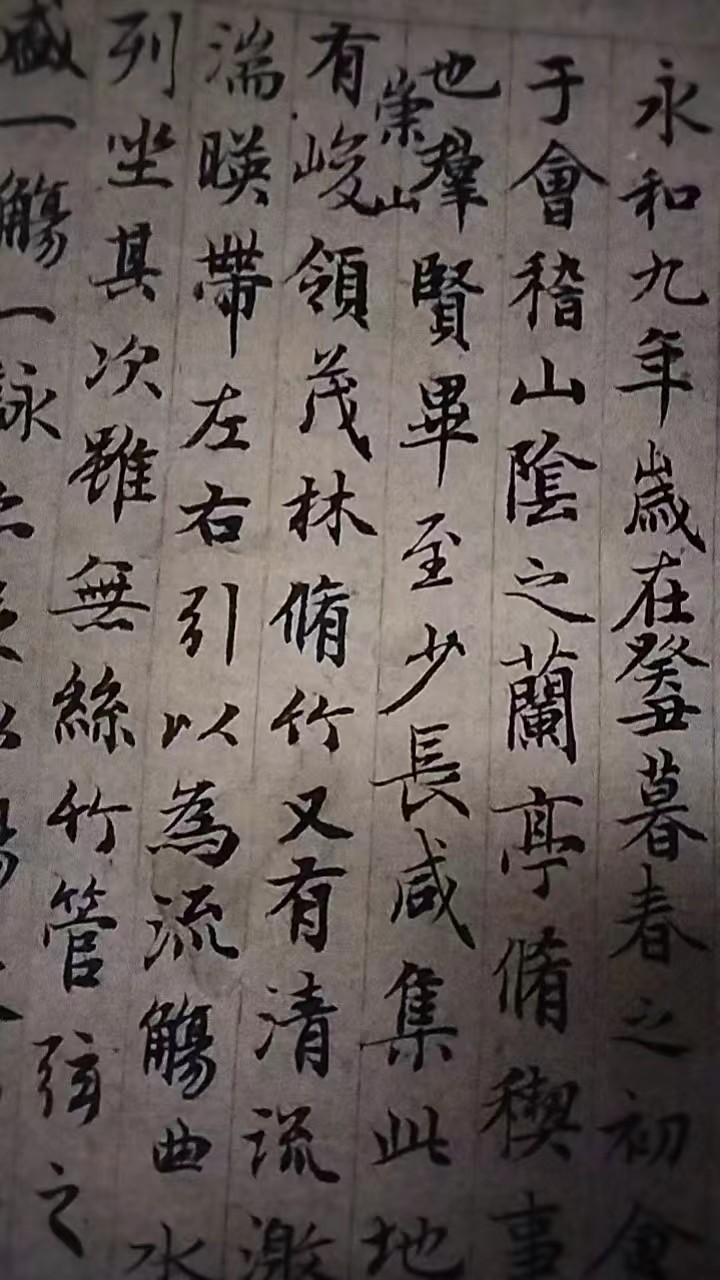 永和九年歲在癸丑暮春之初會
于會稽山陰之蘭亭脩稧事
也羣賢畢至少長咸集此地
有崇山峻領茂林脩竹又有清流激
湍暎帶左右引以為流觴曲水
列坐其次雖無絲竹管弦之
盛一觴一詠